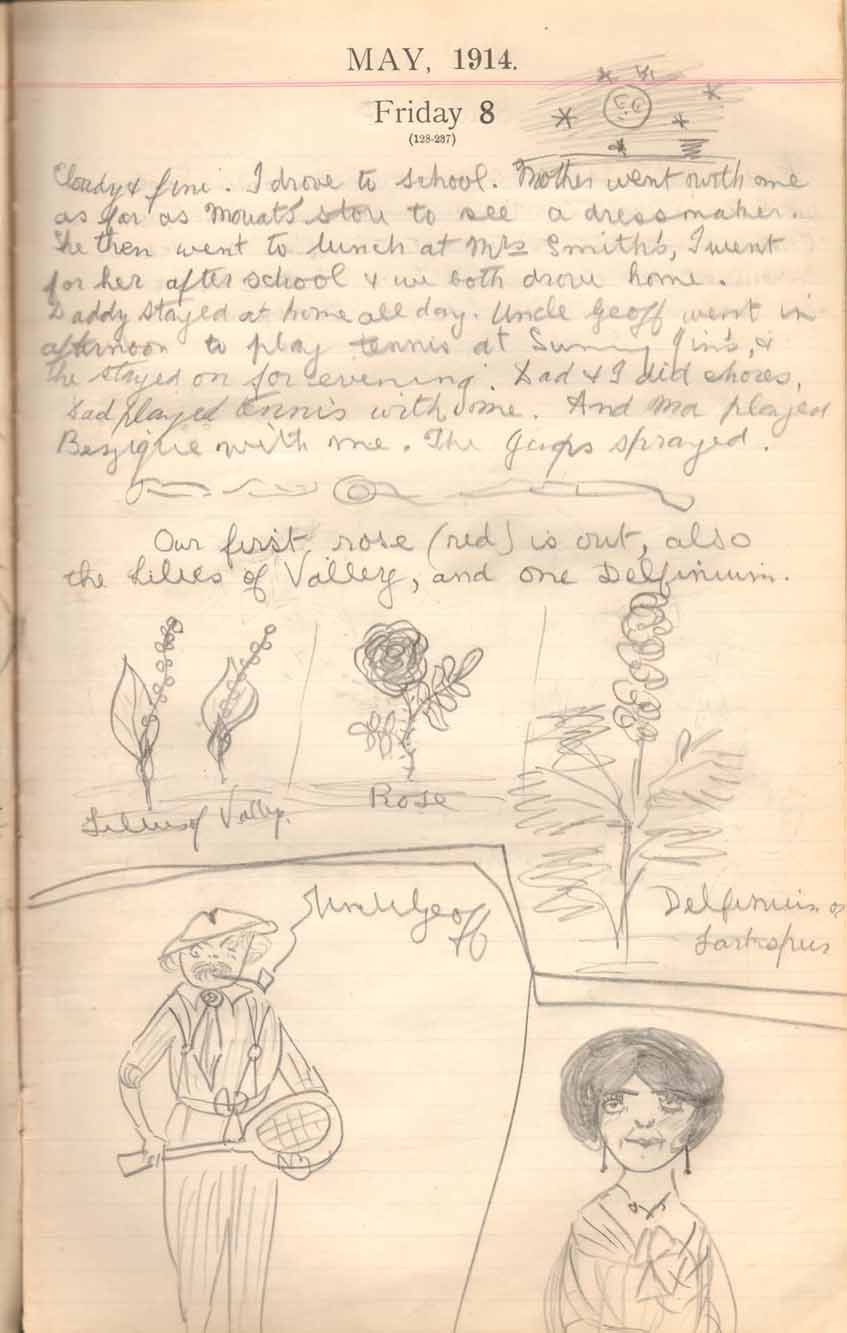 MAY, 1914.
Friday 8
(128-237)
Cloudy & fine. I drove to school. Mother went with me
as far as Mouats store to see a dressmaker.
She then went to lunch at Mrs Smith's, I went
for her after school & we both drove home.
Daddy stayed at home all day. Uncle Geoff went in
afternoon to play tennis at Sunny Jim's, &
he stayed on for evening. Dad & I did chores,
Dad played tennis with me. And Ma played
Bezique with me. The Japs sprayed.
Our first rose (red) is out, also
the Lilies of Valley, and one Delfinium.
Lilies of Valley.
Rose
Delfinium or
Larkspur
Uncle Geoff